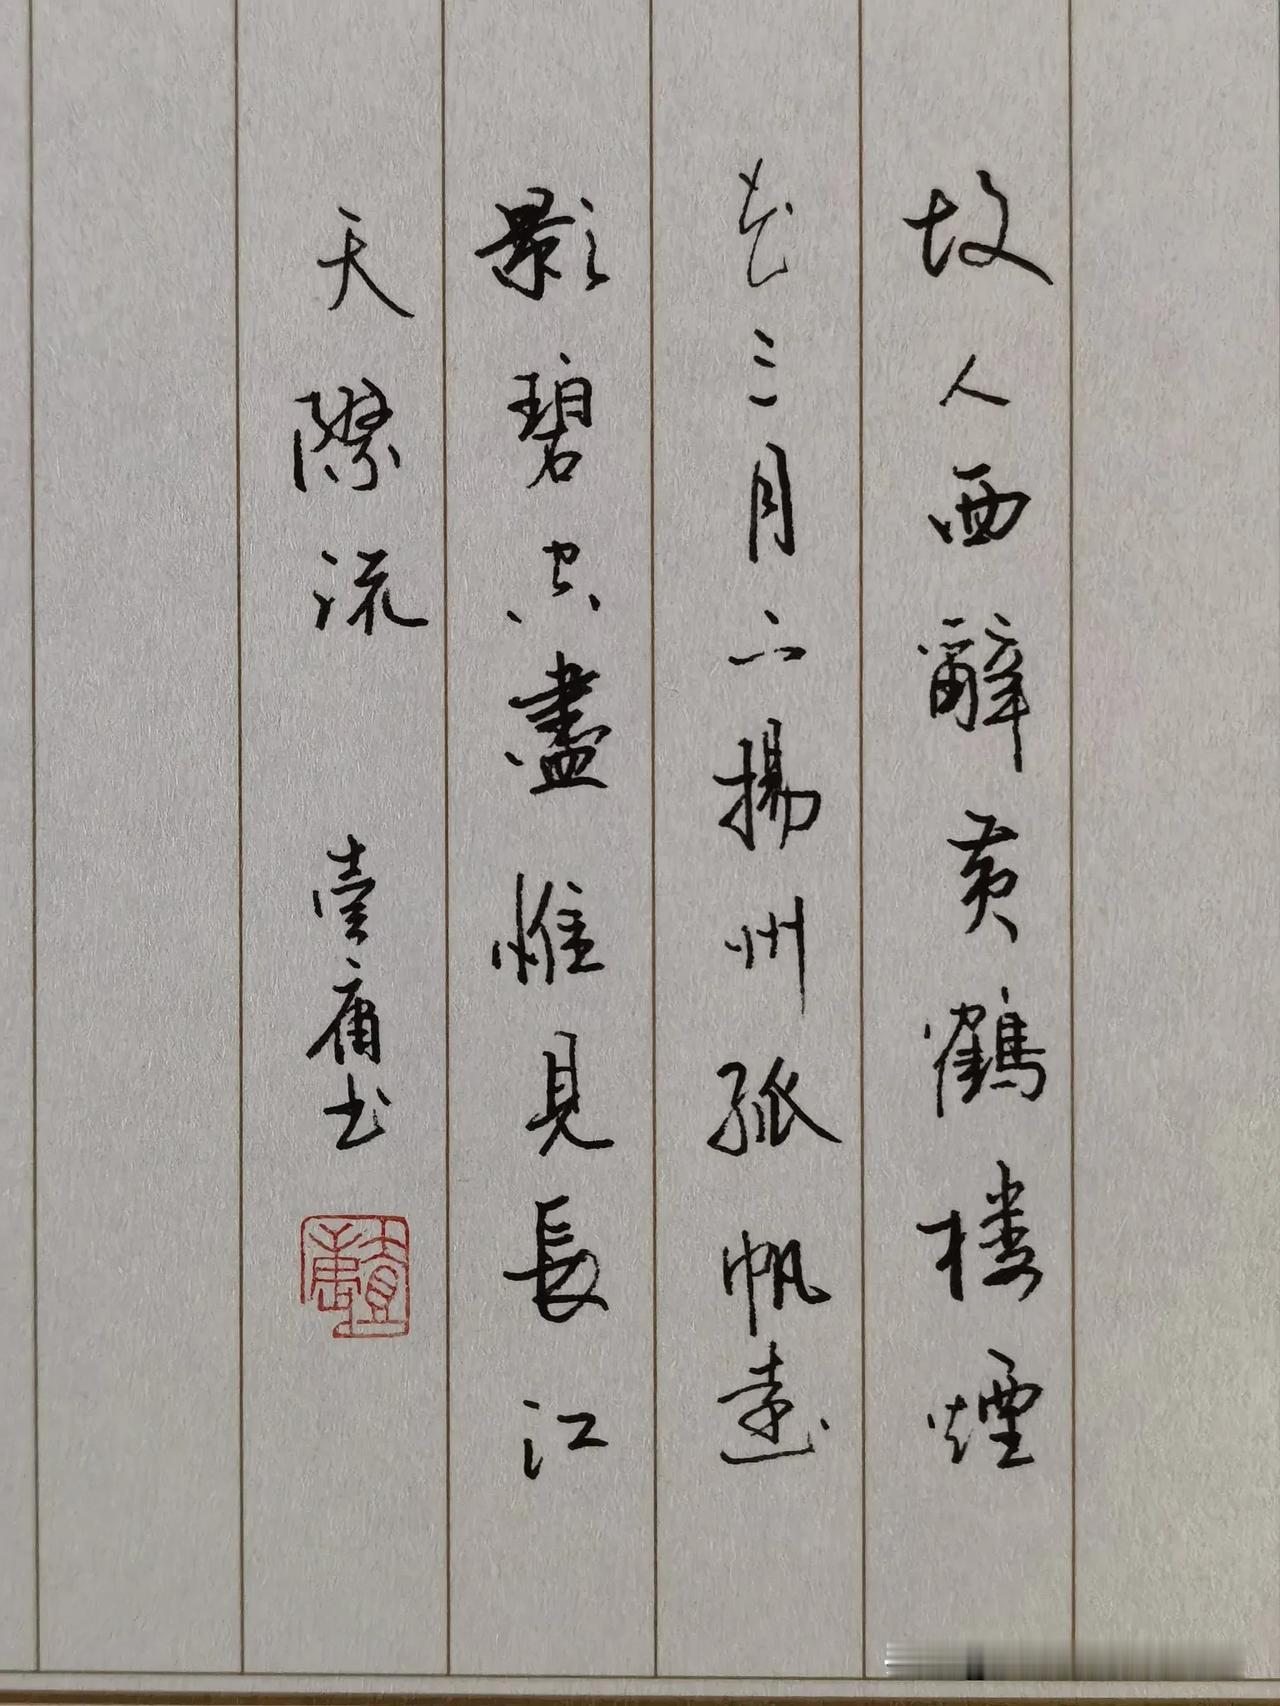 故人西辭黃鶴樓煙
花三月下揚州孤帆遠
影碧空盡惟見長江
天際流 壹庸书